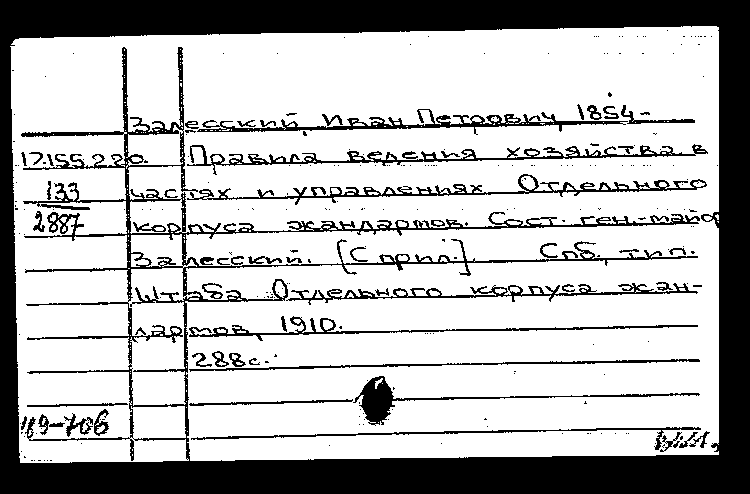 Залесский, Иван Петрович, 1854-
17.155.220. Правила ведения хозяйства в
133 частях и управлениях Отдельного
2887 корпуса жандармов. Сост. ген.-майор
Залесский. [С прил.] Спб, тип.
Штаба Отдельного корпуса жан-
дармов, 1910.
288с.